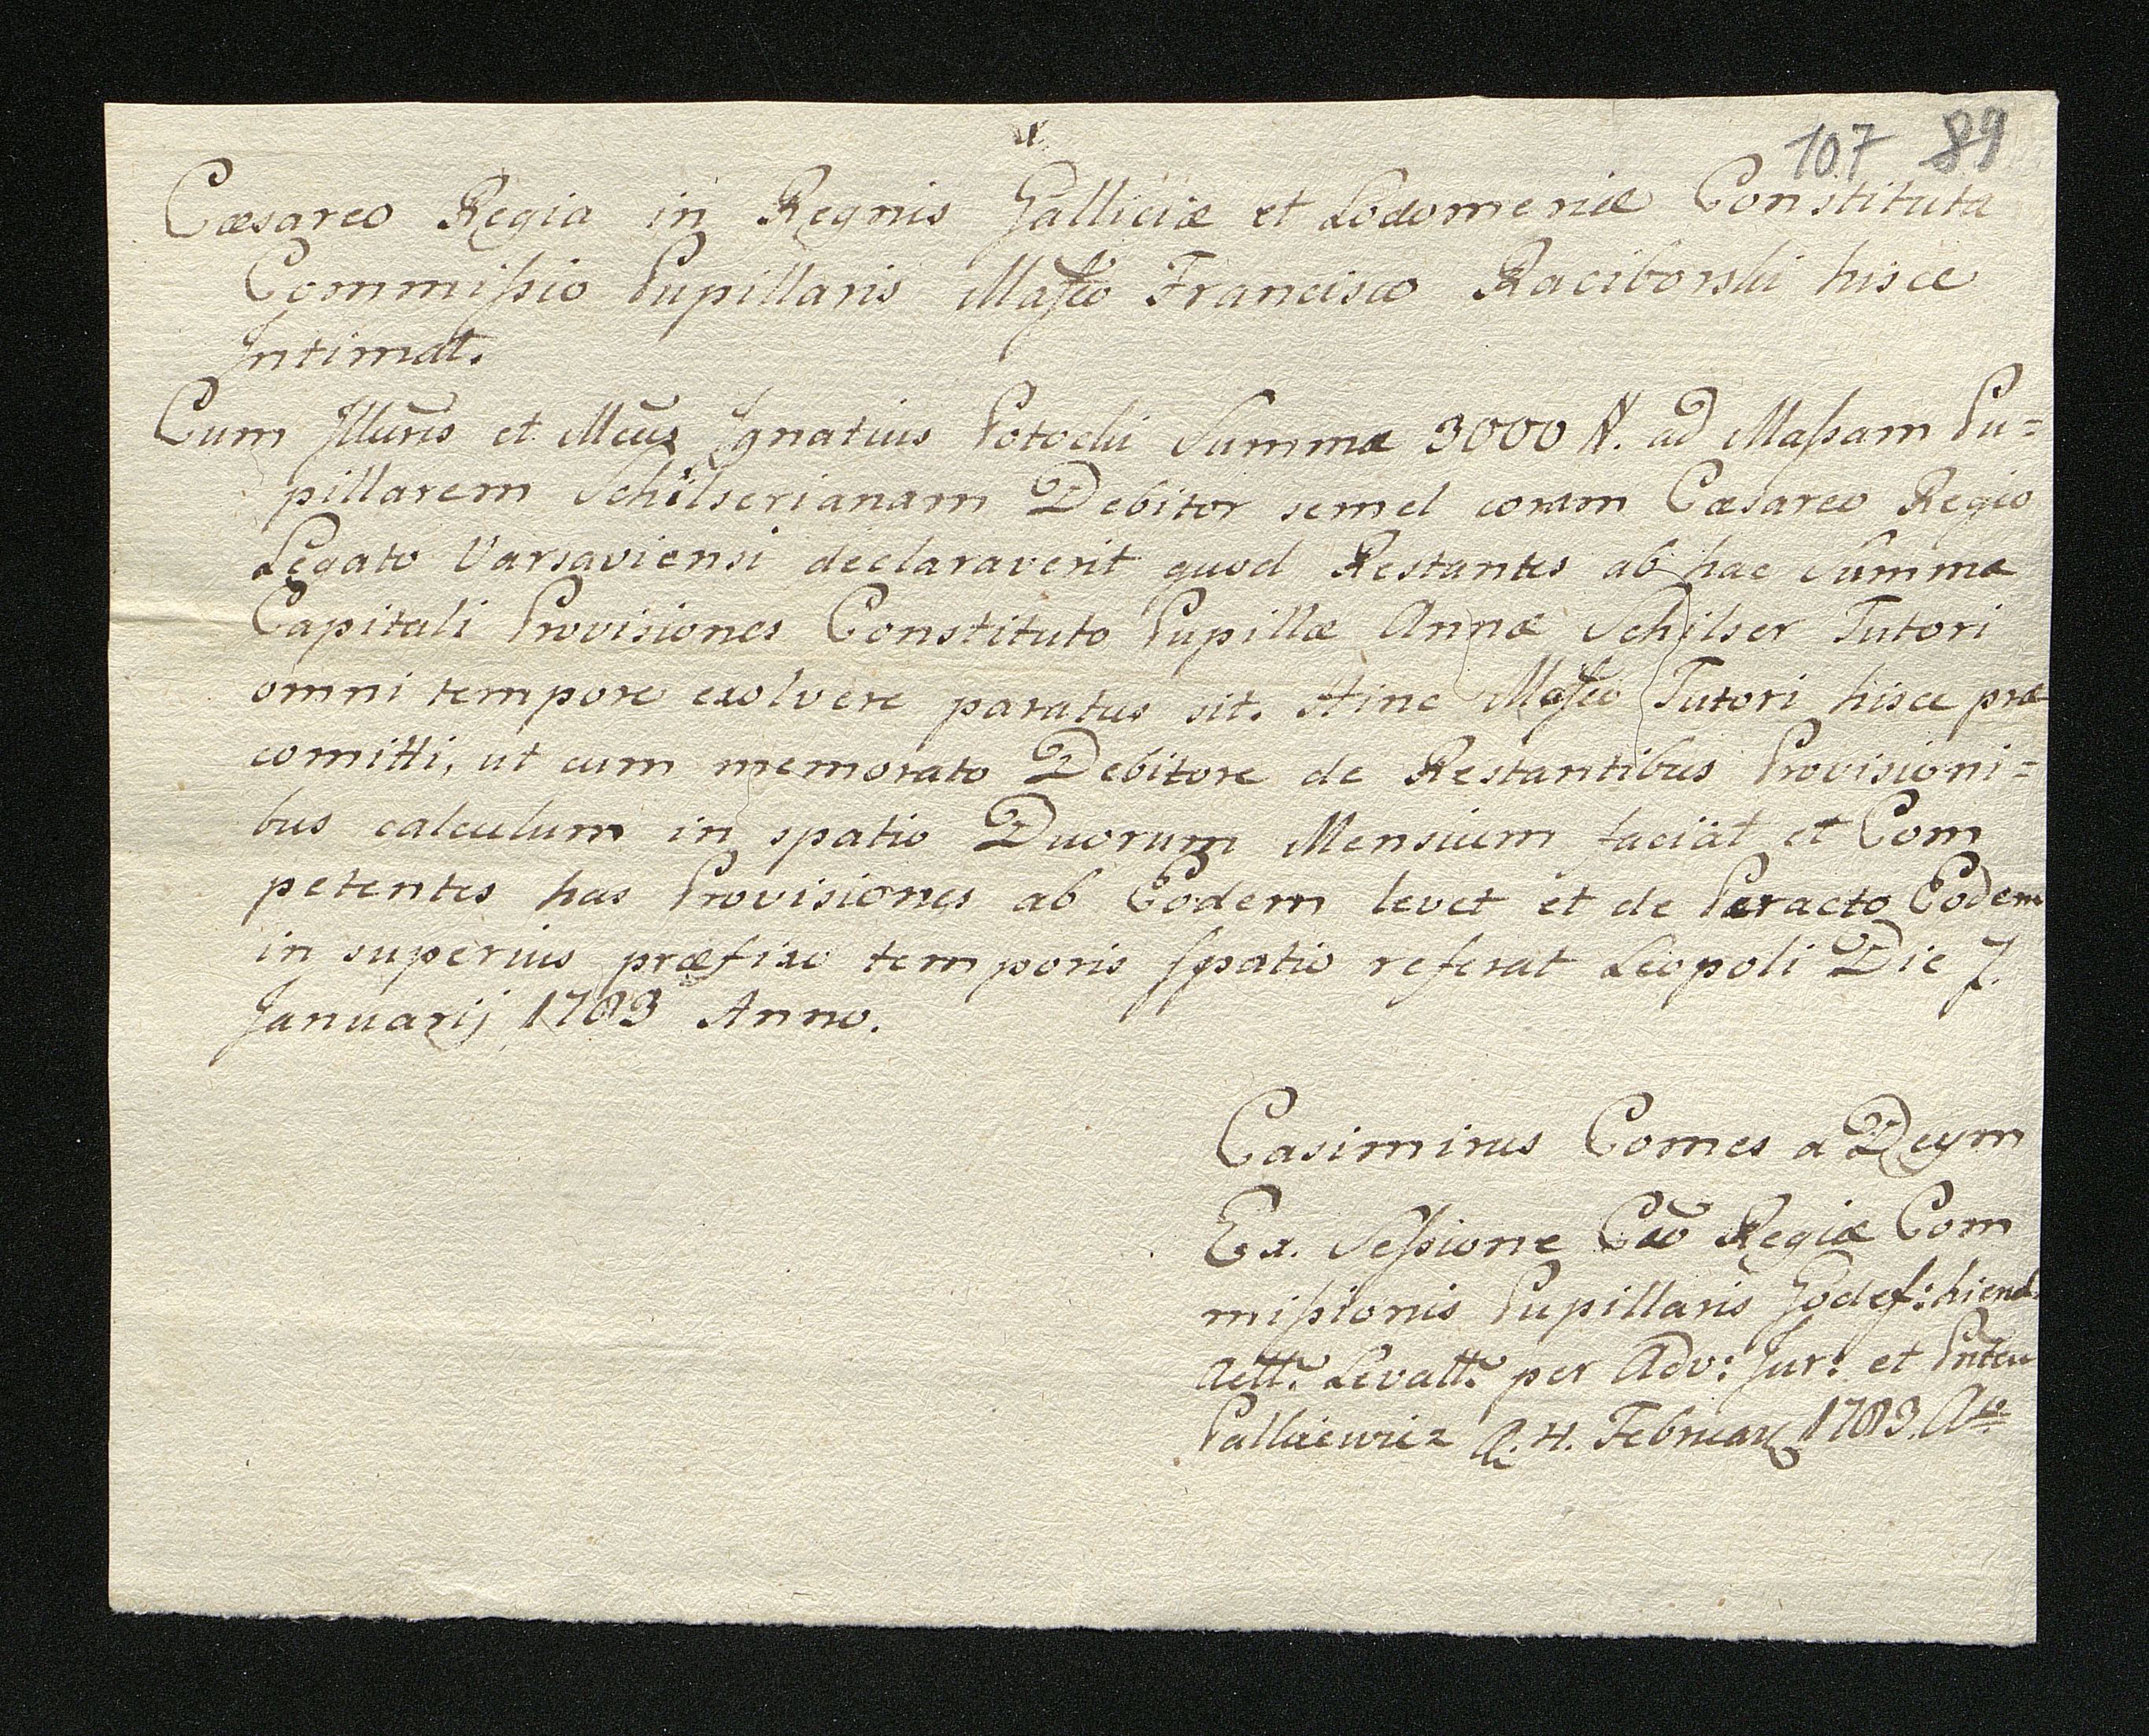 107 89
Cæsareo Regia in Regnis Galliciæ et Lodomeriæ Constituta
Commissio Pupillaris Mafco Francisco Raciborski hisce
Intimat.
Cum Illuris et Mcus Ignatius Potocki Summæ 3000 #. ad Massam Pu=
pillarem Schilserianam Debitor semel coram Cæsareo Regio
Legato Varsaviensi declaraverit quod Restantes ab hac Summa
Capitali Provisiones Constituto Pupillæ Annæ Schilser Tutori
omni tempore exolvere paratus sit. Hinc Mafco Tutori hisce præ
comitti, ut cum memorato Debitore de Restantibus Provisioni=
bus calculum in spatio Duorum Mensium faciat et Com
petentes has Provisiones ab Eodem levet et de Peracto Eodem
in superius præfixo temporis spatio referat Leopoli Die 7.
Januarij 1783 Anno.
Casimirus Comes a Deym
Ex. Sessione Cæo Regiæ Com
missionis Pupillaris Godef:
Actt. Levatt. per Adv: Jur: et
4. February 1783. Ao